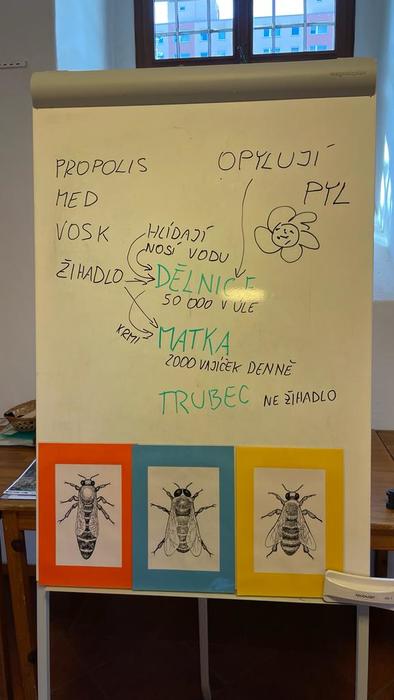 PROPOLIS
MED
VOSK
ŽIHADLO
OPYLUJÍ
PYL
HLÍDAJÍ
NOSÍ VODU
DĚLNICE
50 000 V ÚLE
KRMÍ
MATKA
2000 VAJÍČEK DENNĚ
TRUBEC NE ŽIHADLO